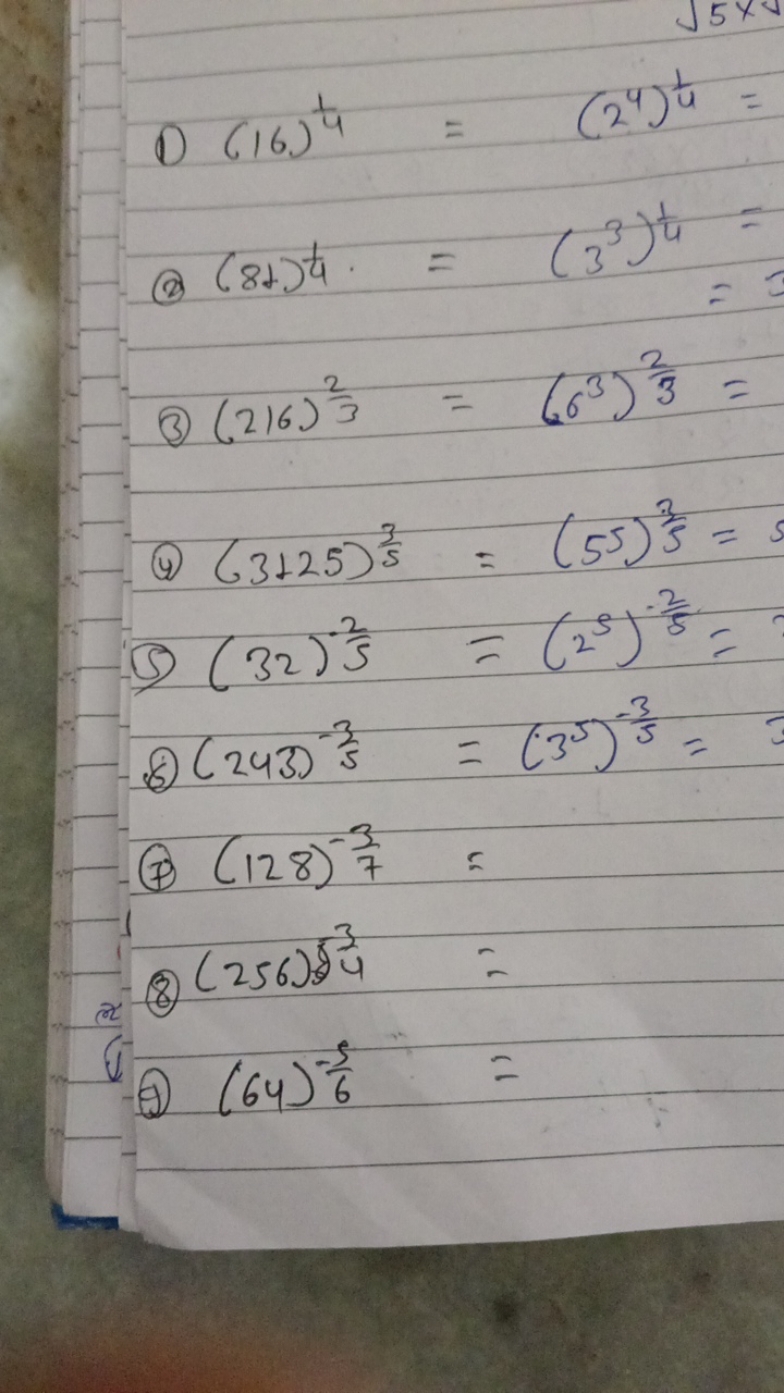 √5×√
① (16)^{1/4} = (2^4)^{1/4} =
② (81)^{1/4}. = (3^3)^{1/4} =
=
③ (216)^{2/3} = (6^3)^{2/3} =
④ (3125)^{3/5} = (5^5)^{3/5} = 5
⑤ (32)^{-2/5} = (2^5)^{-2/5} =
⑥ (243)^{-3/5} = (3^5)^{-3/5} = 3
⑦ (128)^{-3/7} =
⑧ (256)^{3/4} =
(64)^{-5/6} =